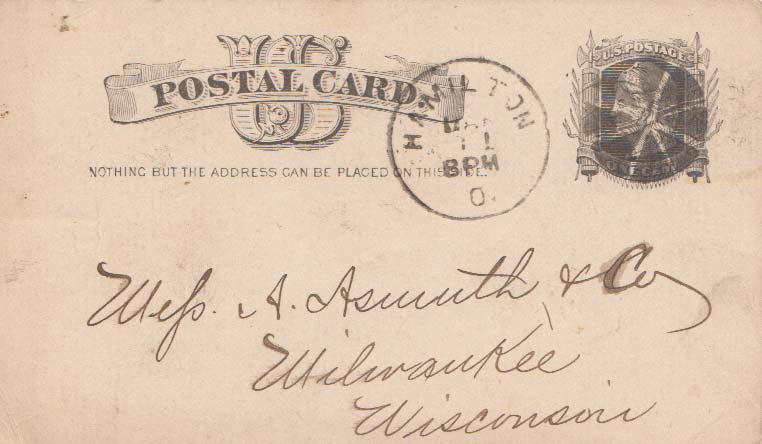 US
POSTAL CARD.
NOTHING BUT THE ADDRESS CAN BE PLACED ON THIS SIDE.
HAMILTON
MAR
11
8PM
O.
U.S. POSTAGE
ONE CENT
Mess. A. Asmuth & Co
Milwaukee
Wisconsin